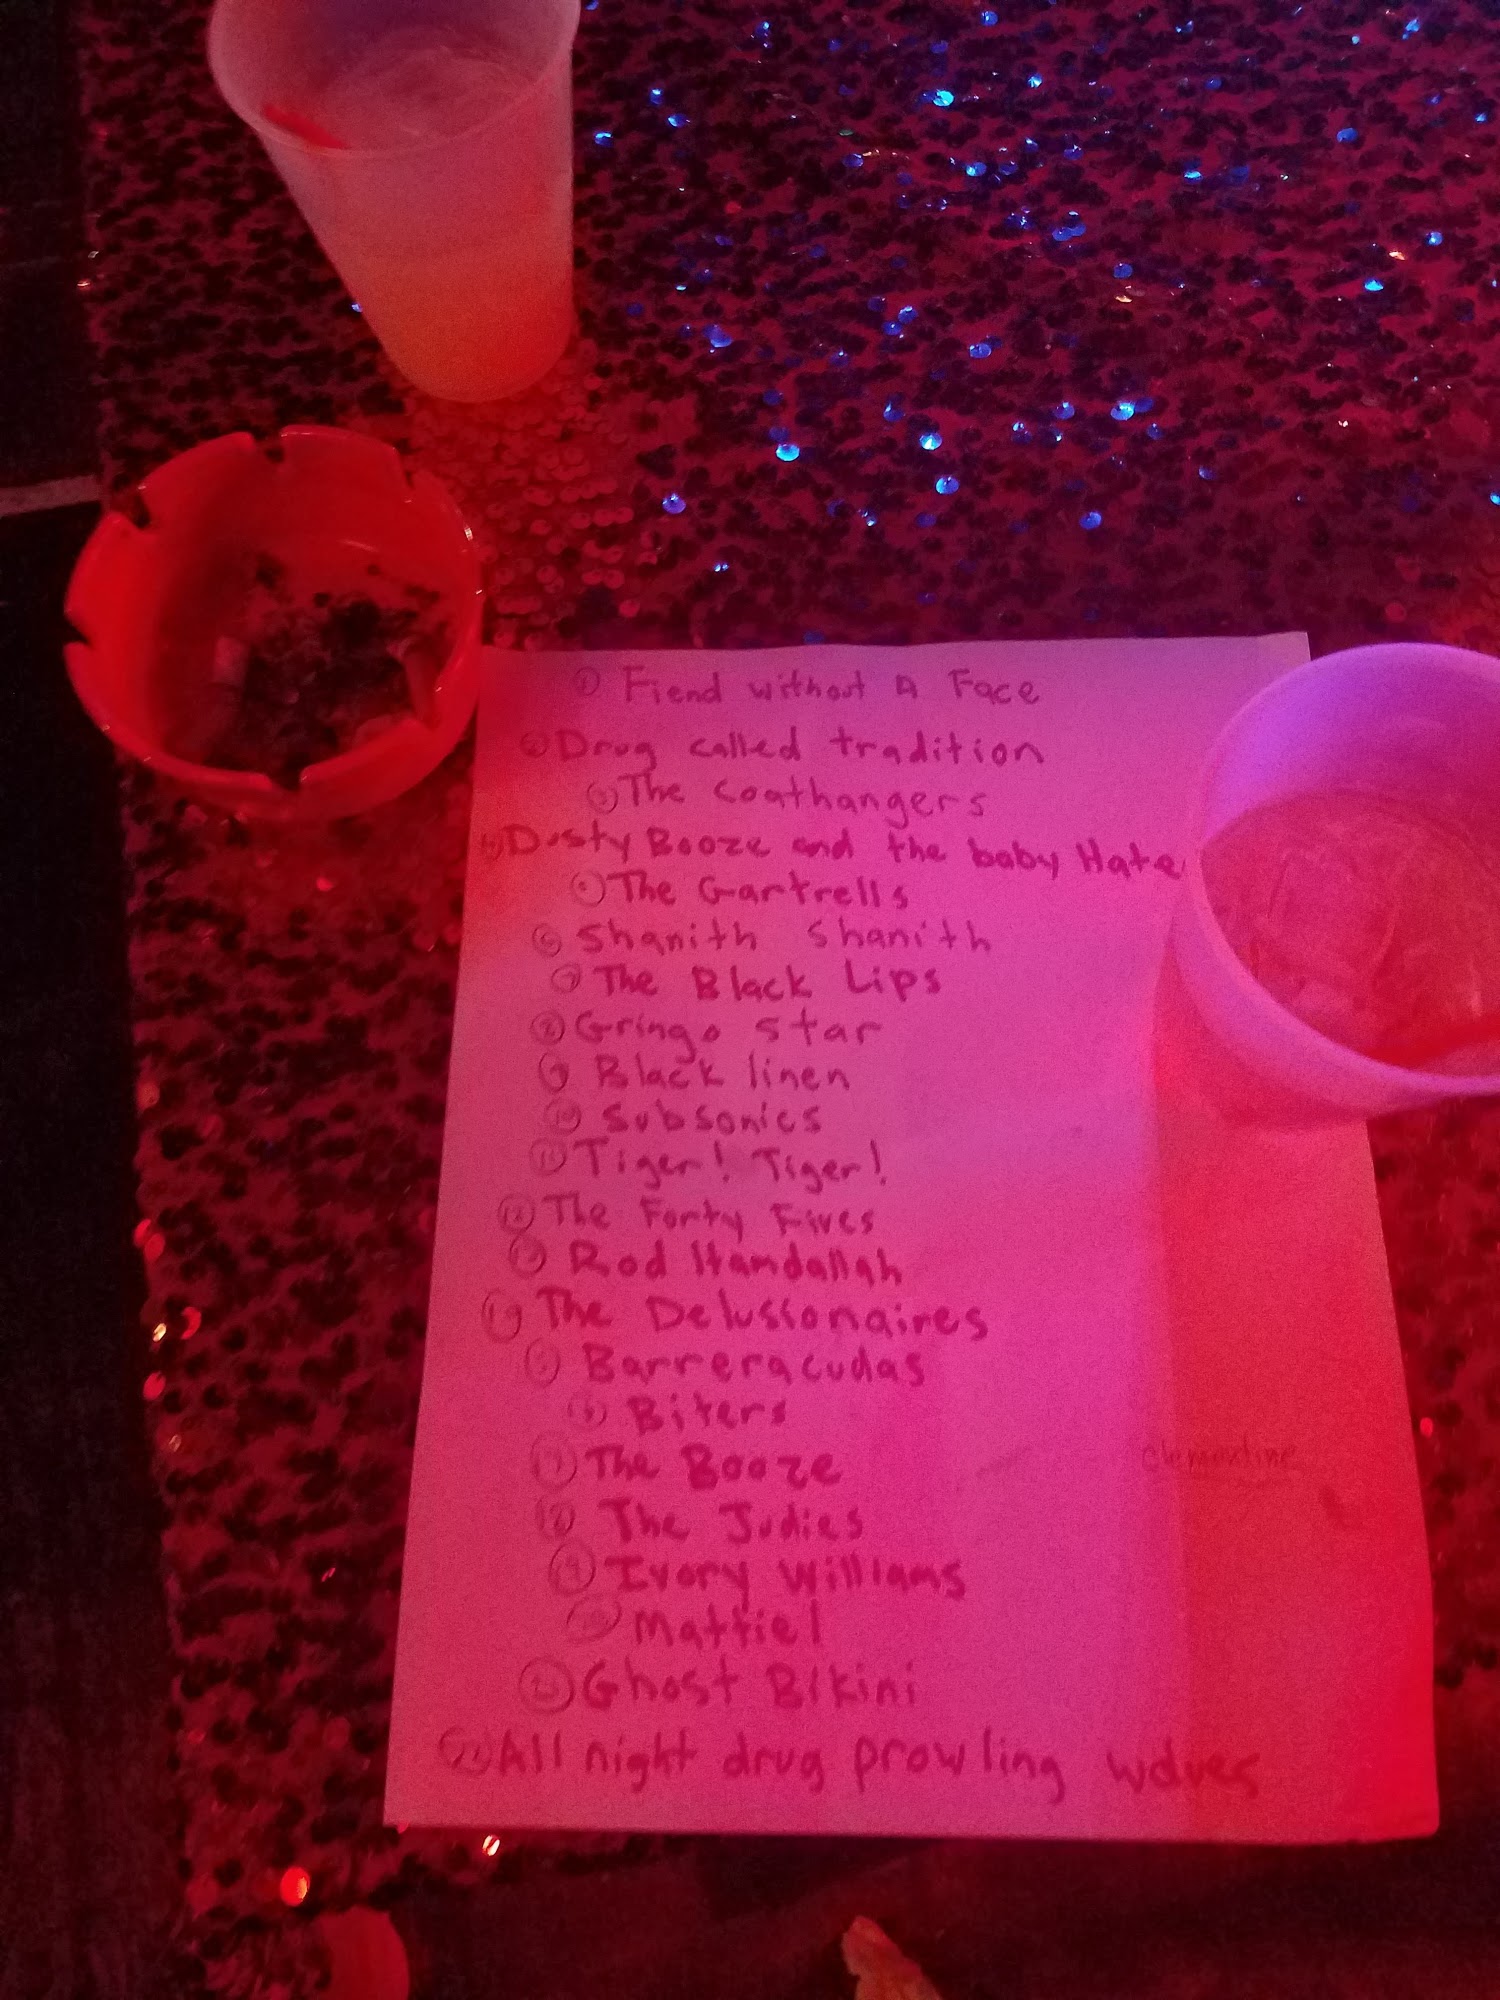 ① Fiend without A Face
② Drug called tradition
③ The Coathangers
④ Dusty Booze and the baby Hate
⑤ The Gartrells
⑥ Shanith Shanith
⑦ The Black Lips
⑧ Gringo star
⑨ Black linen
⑩ Subsonics
⑪ Tiger! Tiger!
⑫ The Forty Fives
⑬ Rod Hamdallah
⑭ The Delussonaires
⑮ Barreracudas
⑯ Biters
⑰ The Booze
Clementine
⑱ The Judies
⑲ Ivory Williams
⑳ Mattiel
㉑ Ghost Bikini
㉒ All night drug prowling wolves